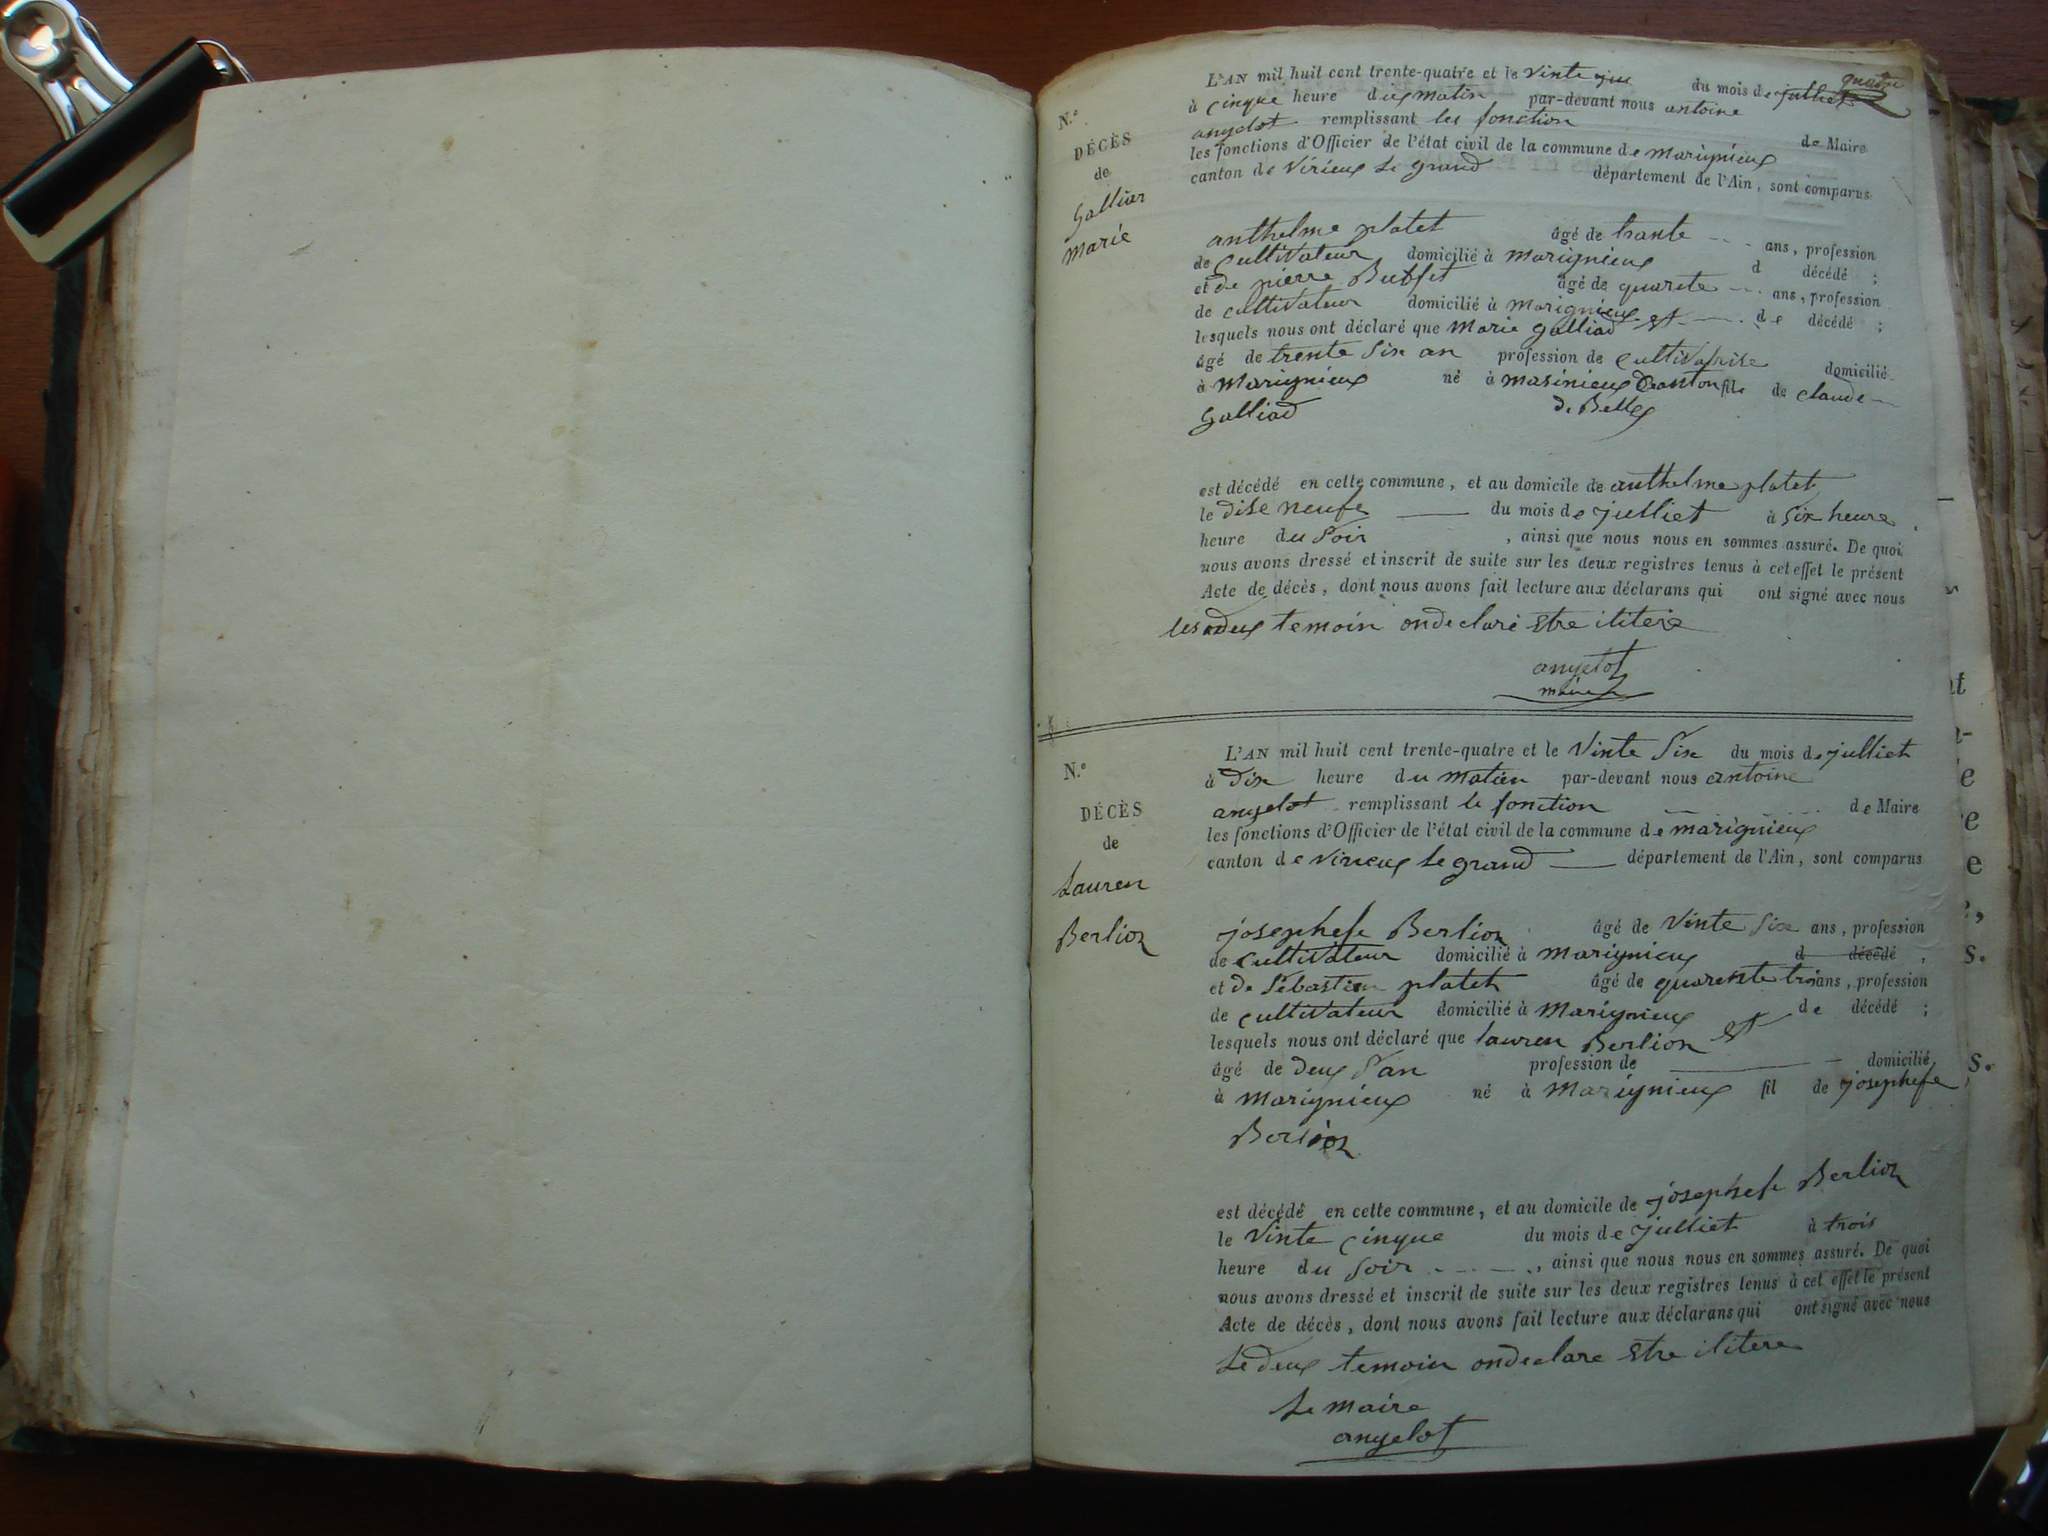 quatre
N.º
DÉCÈS
de
Galliar
Marie
L'AN mil huit cent trente-quatre et le vinte du mois de julliet
à cinque heure du matin par-devant nous antoine
angelot remplissant les fonction de Maire
les fonctions d'Officier de l'état civil de la commune de marignieux
canton de Virieux Le grand département de l'Ain, sont comparus
anthelme platet âgé de trante ans, profession
de Cultivateur domicilié à marignieux d décédé ;
et de pierre Buffet âgé de quarete ans, profession
de cultivateur domicilié à Marignieux de décédé ;
lesquels nous ont déclaré que Marie galliad et
âgé de trente Six an profession de Cultivatrise domicilié
à Marignieux né à masinieux Canton fils de claude
Galliad de Belley
est décédé en cette commune, et au domicile de anthelme platet
le dise neufe du mois de julliet à Six heure
heure du Soir , ainsi que nous nous en sommes assuré. De quoi
nous avons dressé et inscrit de suite sur les deux registres tenus à cet effet le présent
Acte de décès, dont nous avons fait lecture aux déclarans qui ont signé avec nous
les deux temoin on declaré etre ilitere
angelot
maire
N.º
DÉCÈS
de
Lauren
Berlion
L'AN mil huit cent trente-quatre et le Vinte Six du mois de julliet
à Dix heure du matin par-devant nous antoine
angelot remplissant le fonction de Maire
les fonctions d'Officier de l'état civil de la commune de marignieux
canton de virieux Le grand département de l'Ain, sont comparus
josephefe Berlion âgé de Vinte Six ans, profession
de Cultivateur domicilié à Marignieux d décédé ,
et de Sébastien platet âgé de quarente trois ans, profession
de cultivateur domicilié à Marignieux de décédé ;
lesquels nous ont déclaré que lauren Berlion et
âgé de deux San profession de domicilié
à marignieux né à Marignieux fil de josephefe
Berlion
est décédé en cette commune, et au domicile de josephefe Berlion
le Vinte Cinque du mois de julliet à trois
heure du Soir , ainsi que nous nous en sommes assuré. De quoi
nous avons dressé et inscrit de suite sur les deux registres tenus à cet effet le présent
Acte de décès, dont nous avons fait lecture aux déclarans qui ont signé avec nous
Le deux temoin on declare etre ilitere
Le maire
angelot